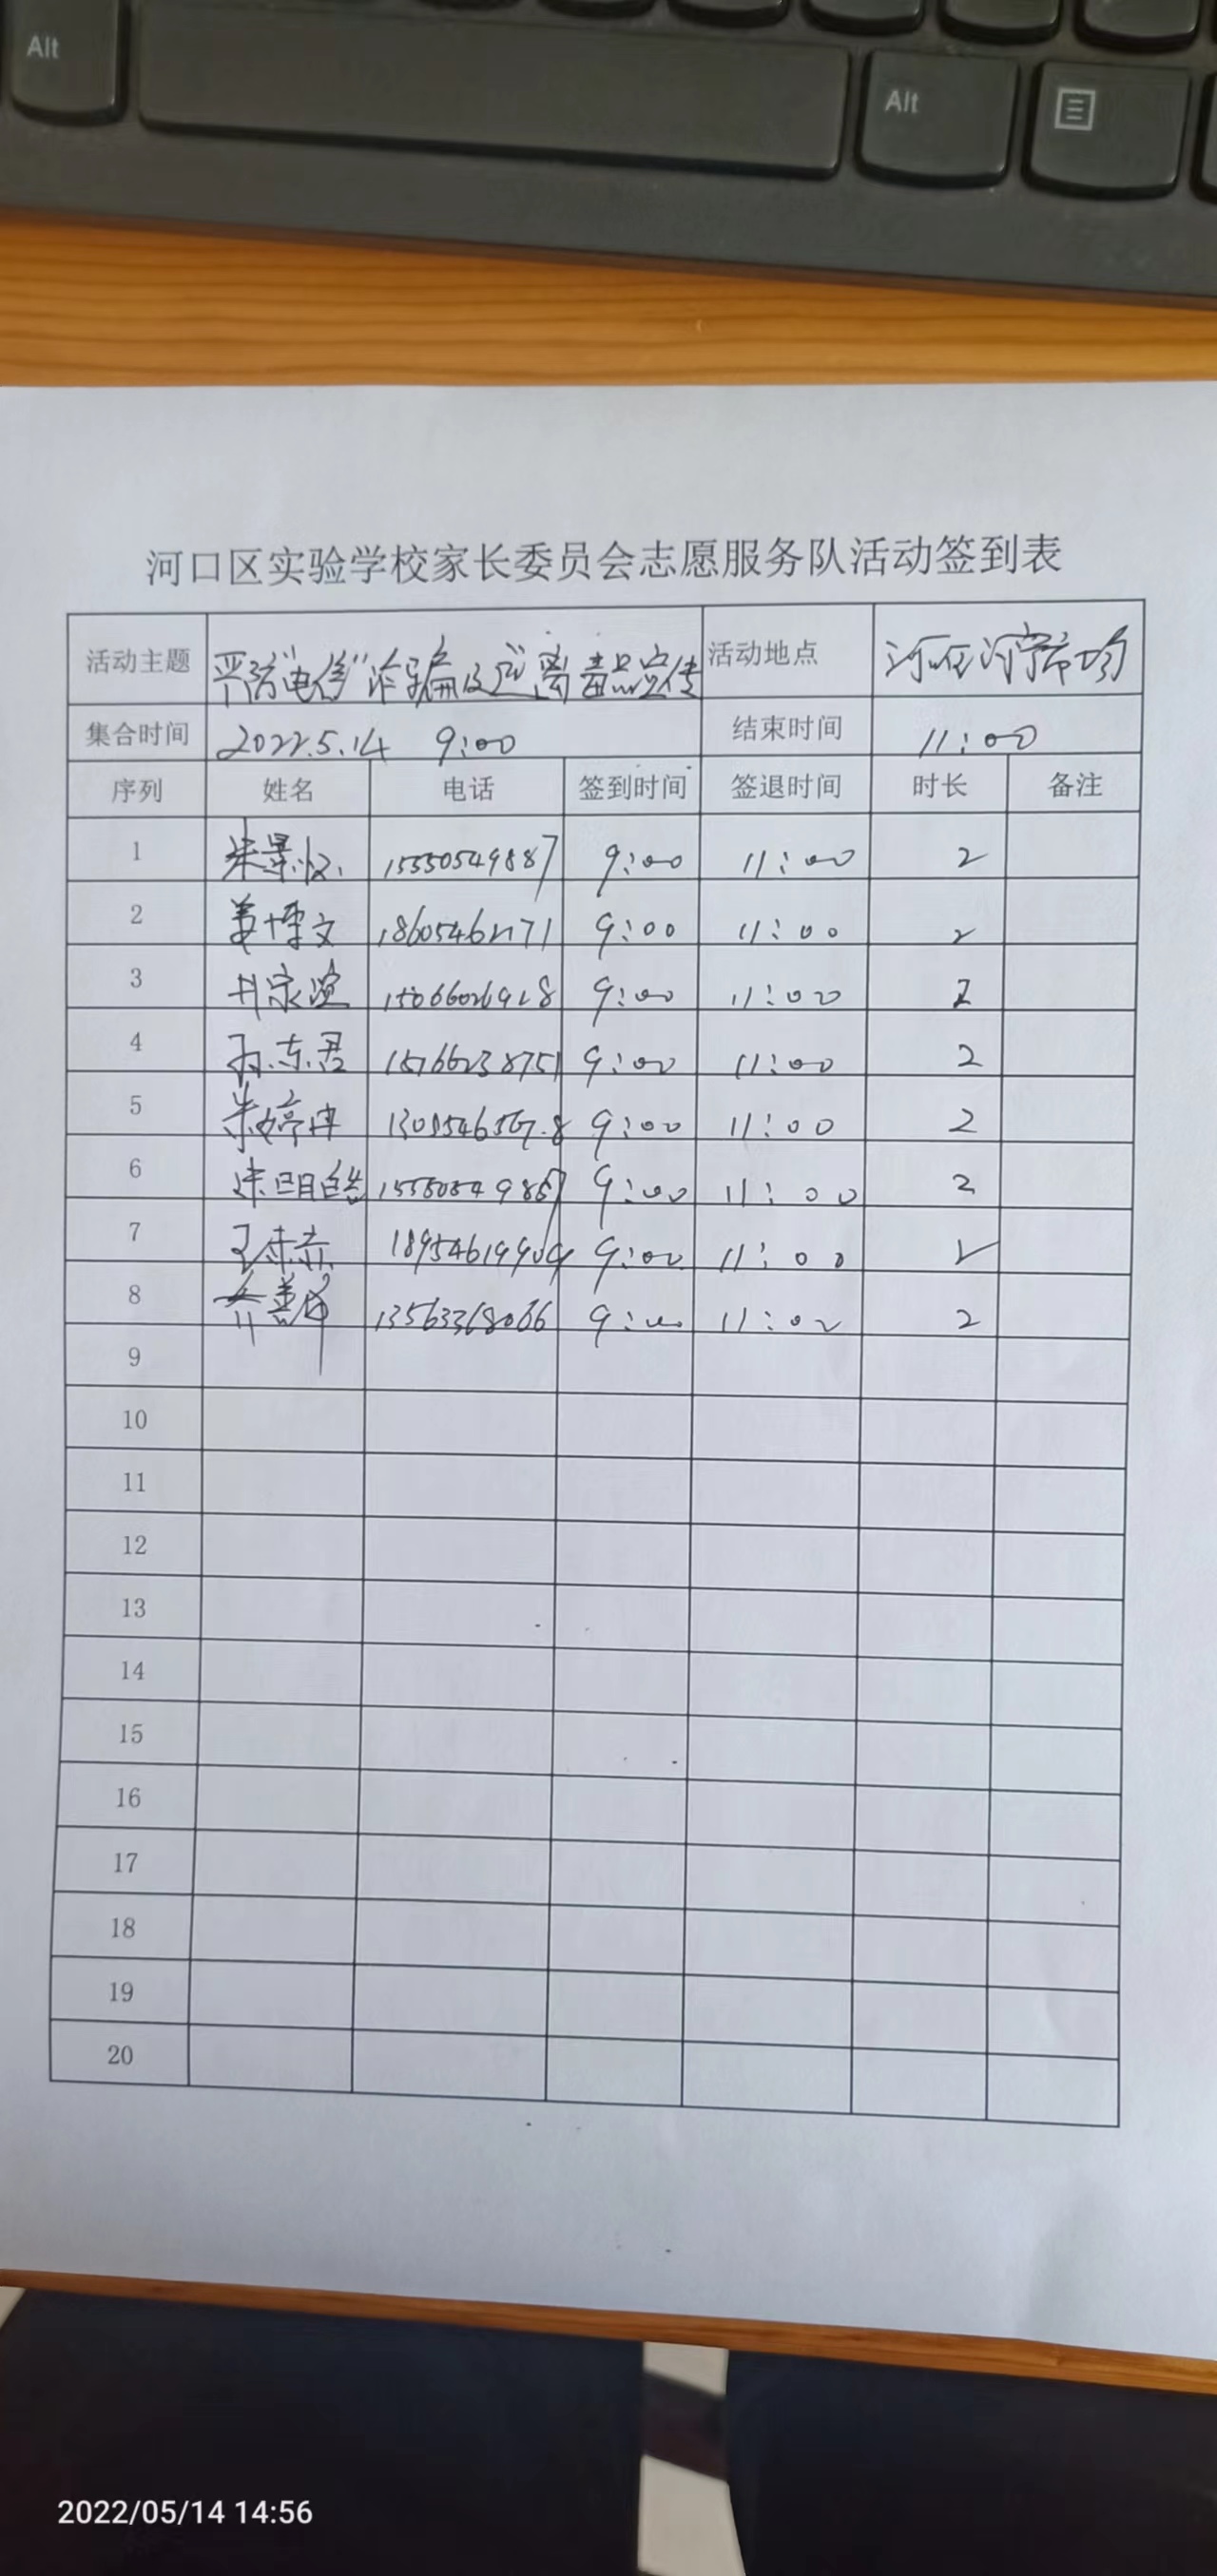 Alt
Alt
河口区实验学校家长委员会志愿服务队活动签到表
活动主题 严防"电信"诈骗及远离毒品宣传 活动地点 河口河宁市场
集合时间 2022.5.14 9:00 结束时间 11:00
序列 姓名 电话 签到时间 签退时间 时长 备注
1 15550549887 9:00 11:00 2
2 姜博文 18605462171 9:00 11:00 2
3 15066026928 9:00 11:00 2
4 孙东君 15766238751 9:00 11:00 2
5 朱婷冉 9:00 11:00 2
6 9:00 11:00 2
7 18954619909 9:00 11:00 2
8 13563368066 9:00 11:00 2
9
10
11
12
13
14
15
16
17
18
19
20
2022/05/14 14:56